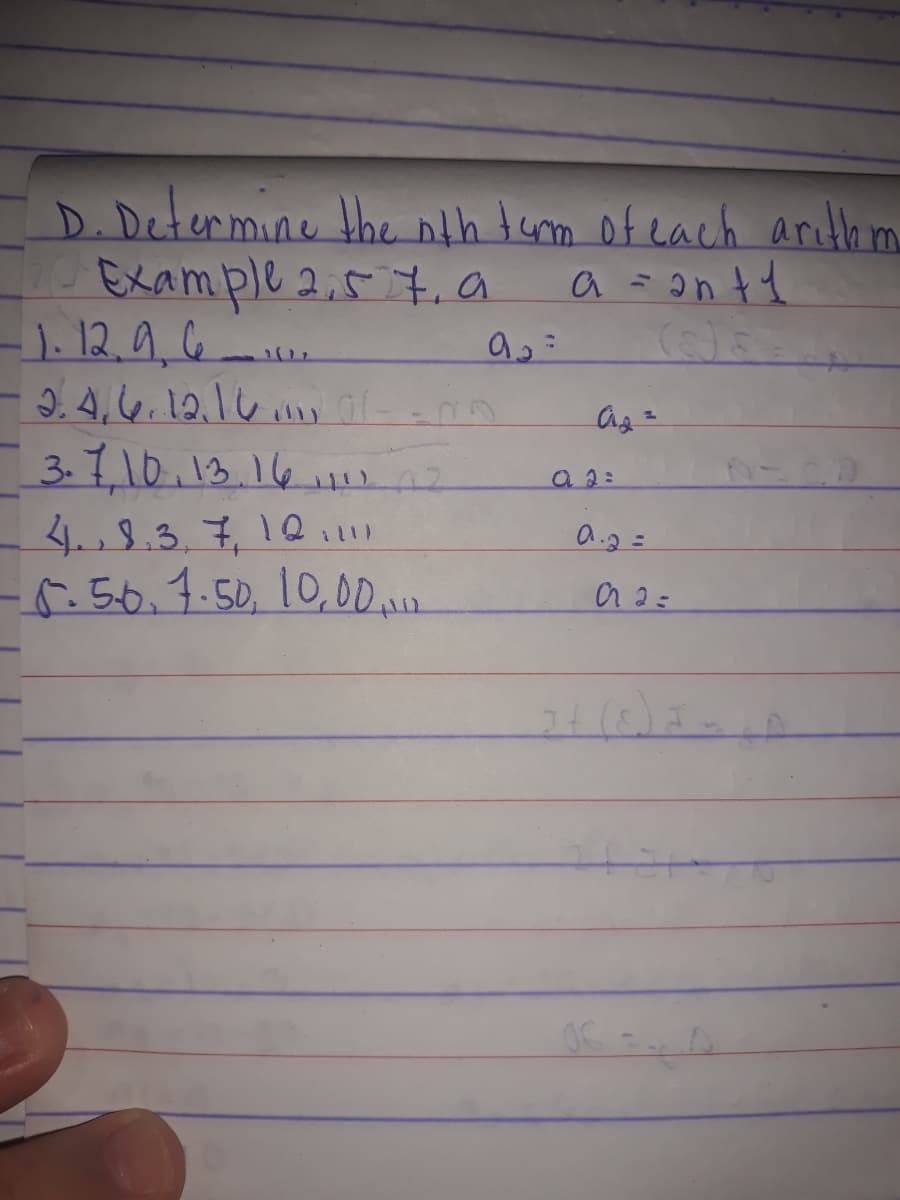 D. Determine the nth term of each arithm
Example 2,5 7, a a = 2n + 1
1. 12, 9, 6 _ ,,,, a2 =
2. 4, 6, 12, 16 ,,,, a2 =
3. 7, 10, 13, 16 ,,,, a 2 =
4. , 8, 3, 7, 12 ,,,, a.2 =
5. 5.0, 7.50, 10,00,,,, a 2 =